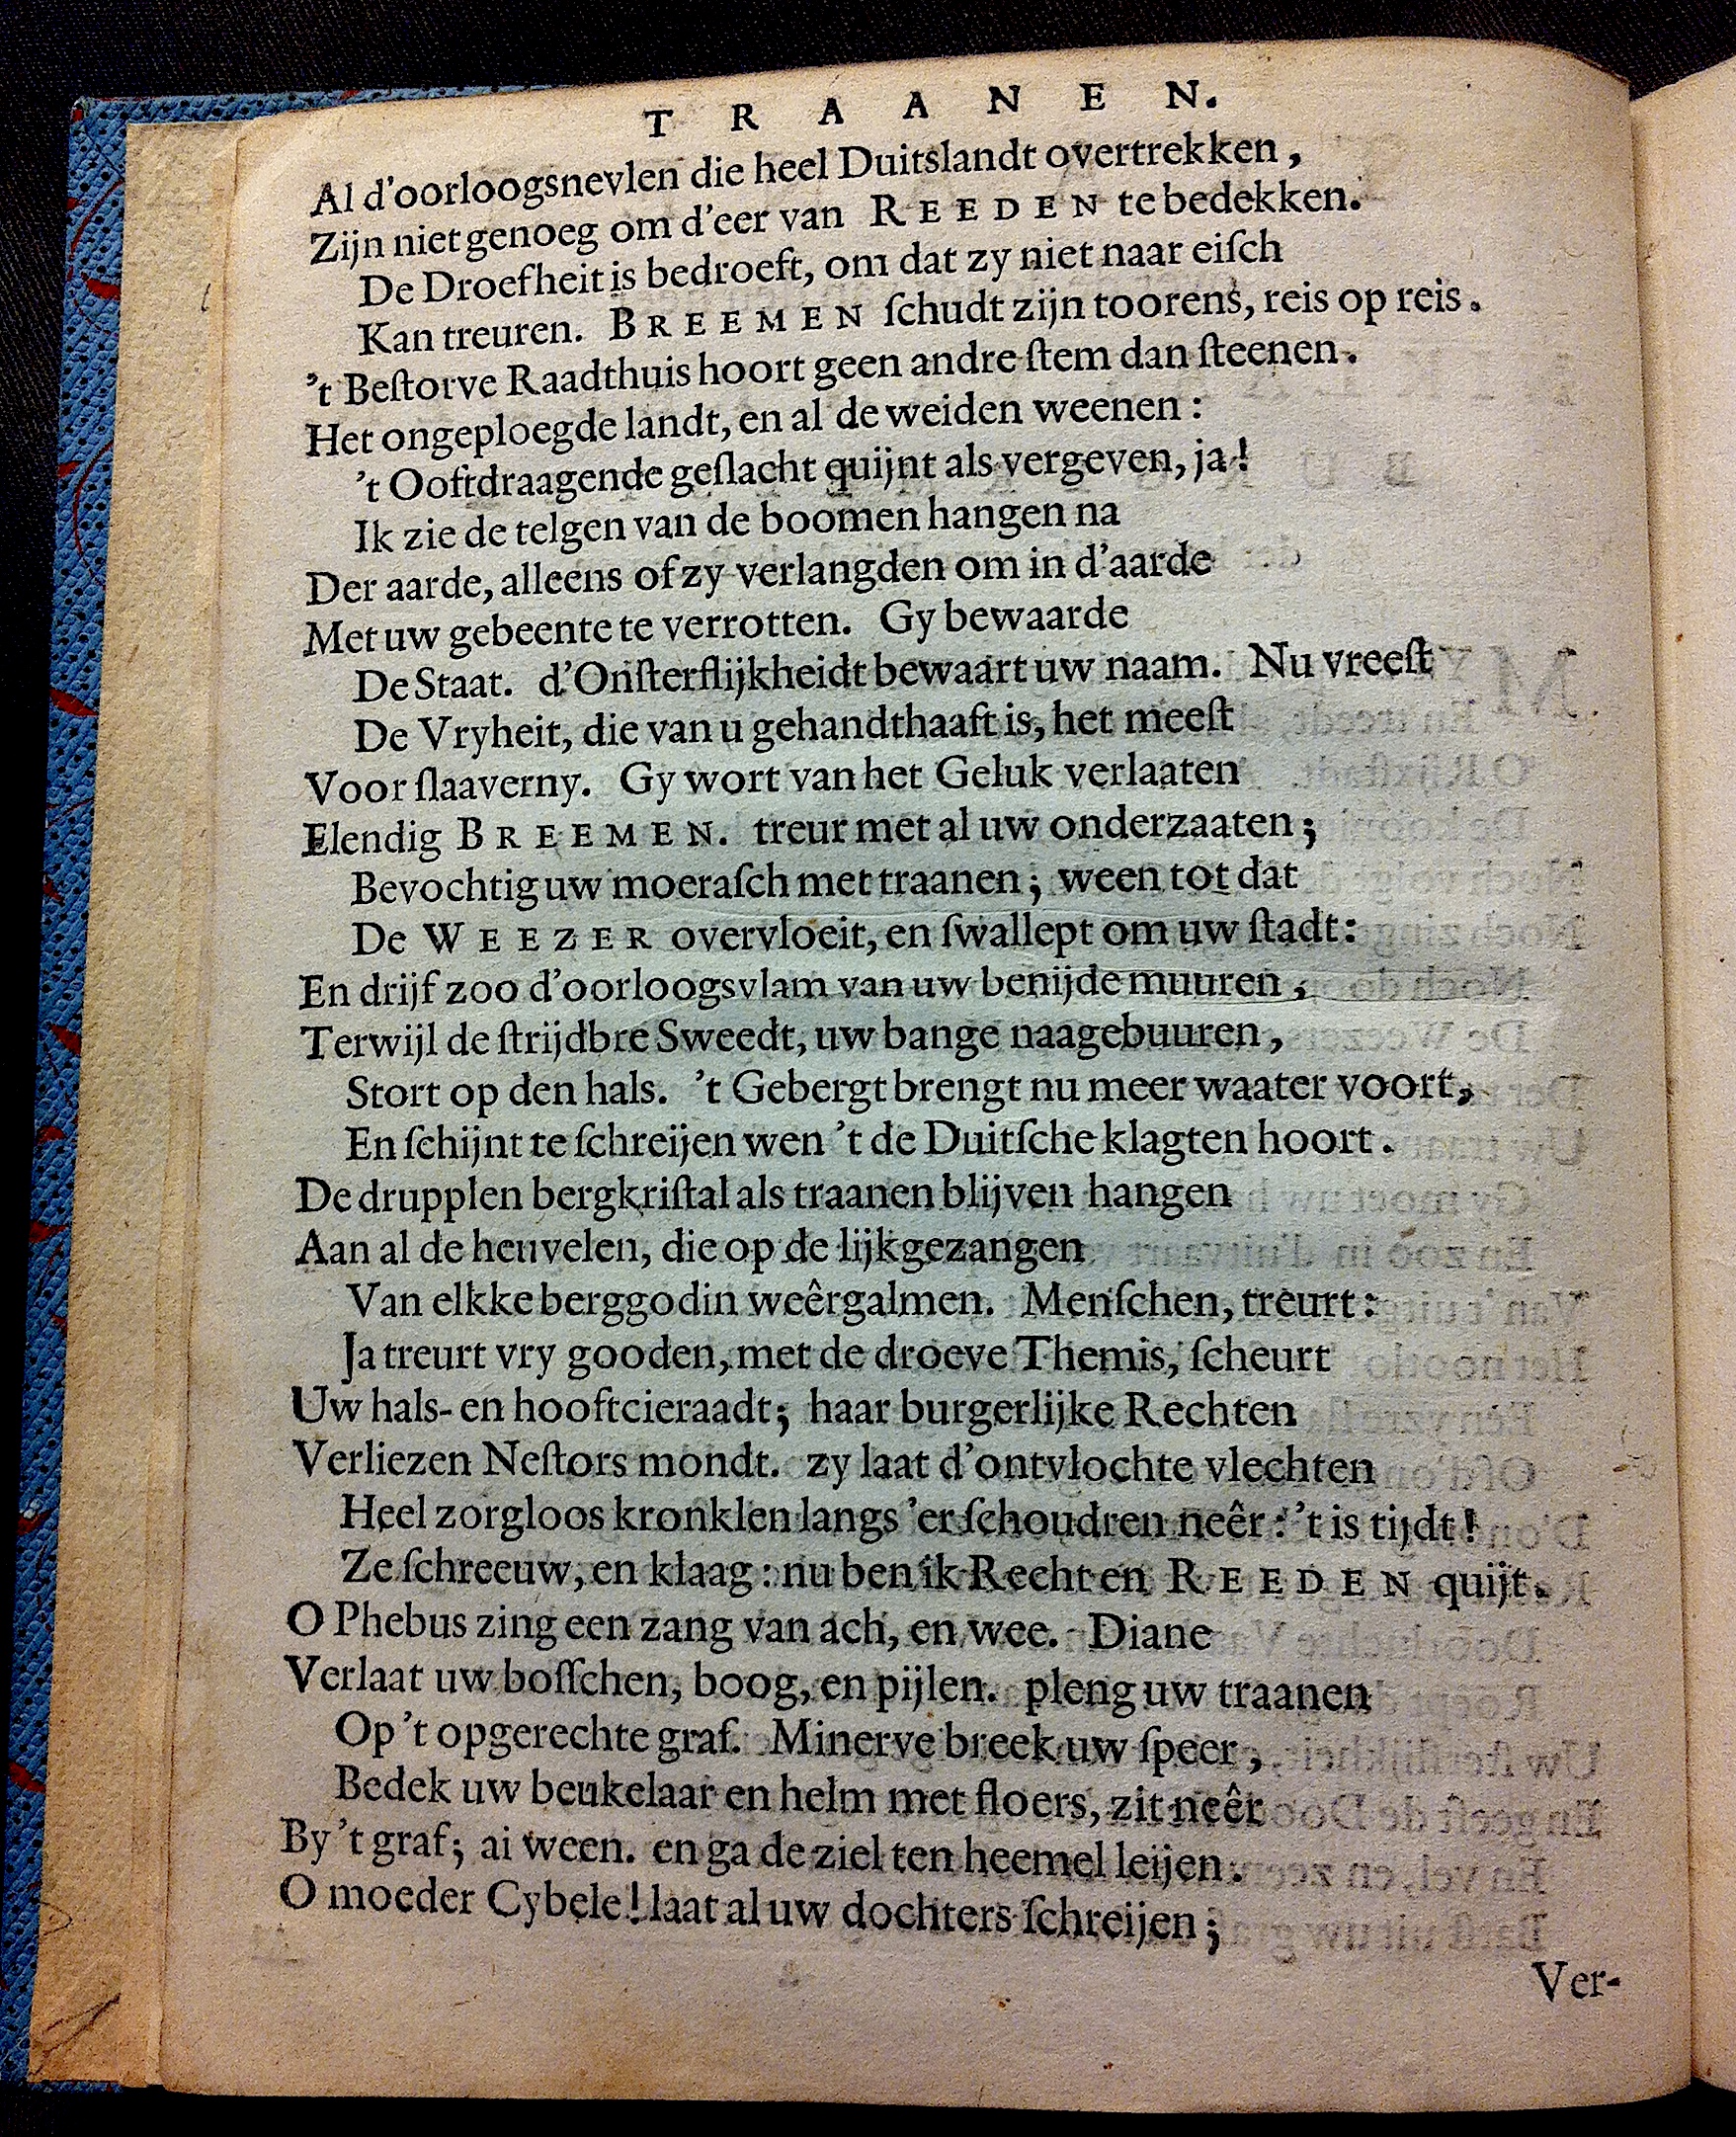 TRAANEN.
Al d'oorloogsnevlen die heel Duitslandt overtrekken,
Zijn niet genoeg om d'eer van REEDEN te bedekken.
De Droefheit is bedroeft, om dat zy niet naar eiſch
Kan treuren. BREEMEN ſchudt zijn toorens, reis op reis.
't Beſtorve Raadthuis hoort geen andre ſtem dan ſteenen.
Het ongeploegde landt, en al de weiden weenen:
't Ooftdraagende geſlacht quijnt als vergeven, ja!
Ik zie de telgen van de boomen hangen na
Der aarde, alleens of zy verlangden om in d'aarde
Met uw gebeente te verrotten. Gy bewaarde
De Staat. d'Onſterflijkheidt bewaart uw naam. Nu vreeſt
De Vryheit, die van u gehandthaaft is, het meeſt
Voor ſlaaverny. Gy wort van het Geluk verlaaten
Elendig BREEMEN. treur met al uw onderzaaten;
Bevochtig uw moeraſch met traanen; ween tot dat
De WEEZER overvloeit, en ſwallept om uw ſtadt:
En drijf zoo d'oorloogsvlam van uw benijde muuren,
Terwijl de ſtrijdbre Sweedt, uw bange naagebuuren,
Stort op den hals. 't Gebergt brengt nu meer waater voort,
En ſchijnt te ſchreijen wen 't de Duitſche klagten hoort.
De drupplen bergkriſtal als traanen blijven hangen
Aan al de heuvelen, die op de lijkgezangen
Van elkke berggodin weêrgalmen. Menſchen, treurt:
Ja treurt vry gooden, met de droeve Themis, ſcheurt
Uw hals- en hooftcieraadt; haar burgerlijke Rechten
Verliezen Neſtors mondt. zy laat d'ontvlochte vlechten
Heel zorgloos kronklen langs 'er ſchoudren neêr: 't is tijdt!
Ze ſchreeuw, en klaag: nu ben ik Recht en REEDEN quijt.
O Phebus zing een zang van ach, en wee. Diane
Verlaat uw boſſchen, boog, en pijlen. pleng uw traanen
Op 't opgerechte graf. Minerve breek uw ſpeer,
Bedek uw beukelaar en helm met floers, zit neêr
By 't graf; ai ween. en ga de ziel ten heemel leijen.
O moeder Cybele! laat al uw dochters ſchreijen;
Ver-